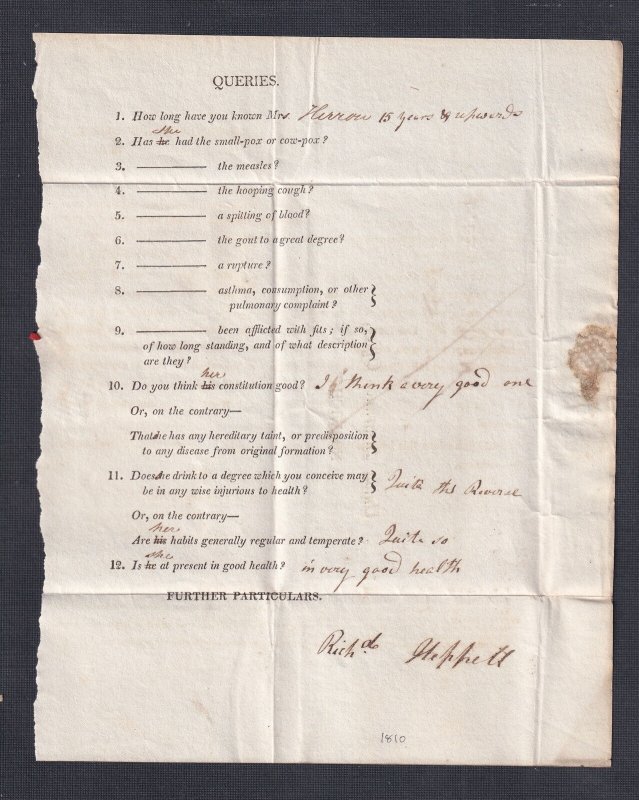 QUERIES.
1. How long have you known Mrs. Herron 15 years & upwards
she
2. Has he had the small-pox or cow-pox?
3. ——— the measles?
4. ——— the hooping cough?
5. ——— a spitting of blood?
6. ——— the gout to a great degree?
7. ——— a rupture?
8. ——— asthma, consumption, or other
pulmonary complaint?
9. ——— been afflicted with fits; if so,
of how long standing, and of what description
are they?
her
10. Do you think his constitution good? I think a very good one
Or, on the contrary—
That she has any hereditary taint, or predisposition
to any disease from original formation?
11. Does she drink to a degree which you conceive may
be in any wise injurious to health? Quite the Reverse
Or, on the contrary—
her
Are his habits generally regular and temperate? Quite so
she
12. Is he at present in good health? in very good health
FURTHER PARTICULARS.
Richd
1810